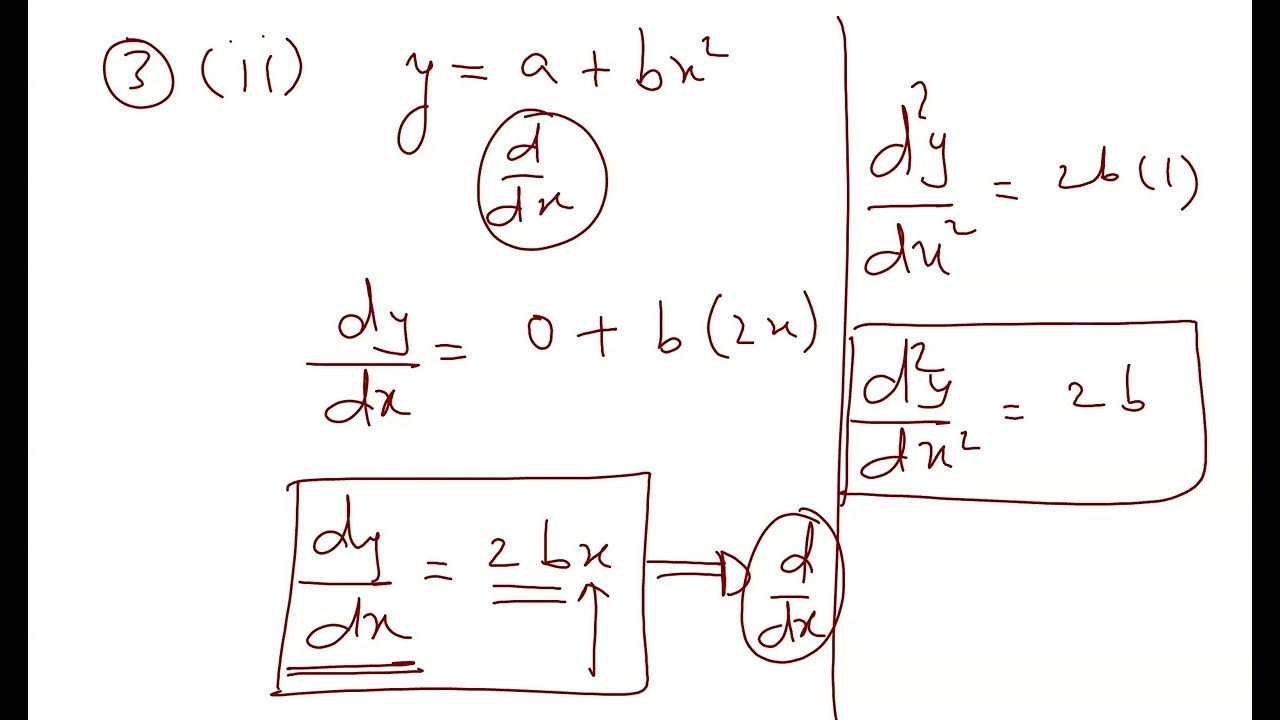 ③ (ii) y = a + bx²
d/dx
dy/dx = 0 + b(2x)
dy/dx = 2bx ⇒ d/dx
d²y/dx² = 2b(1)
d²y/dx² = 2b